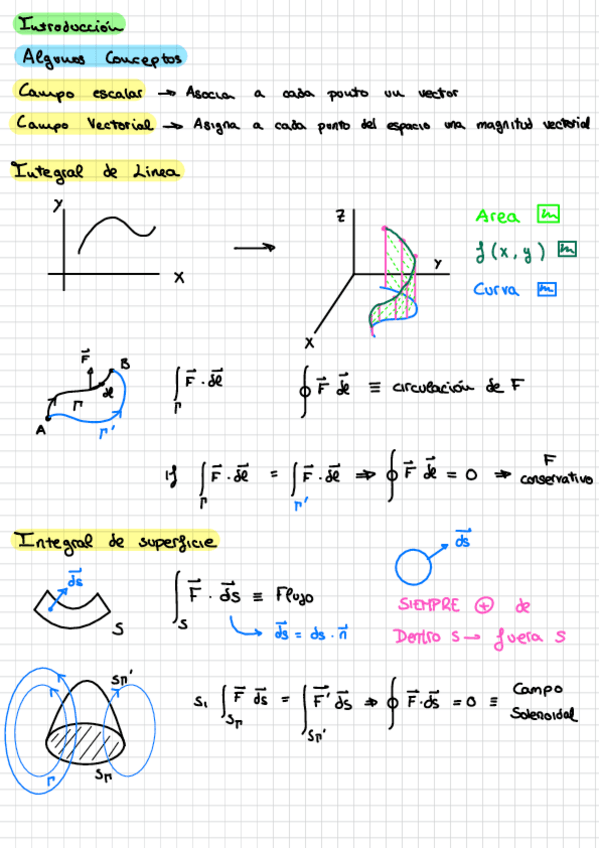 Introducción
Algunos Conceptos
Campo escalar → Asocia a cada punto un vector
Campo Vectorial → Asigna a cada punto del espacio una magnitud vectorial
Integral de Linea
y
x
z
y
x
Area
f(x,y)
Curva
F⃗
B
dl
Γ
A
Γ'
∫_Γ F⃗ · dl⃗
∮ F⃗ dl⃗ ≡ circulación de F
If ∫_Γ F⃗ · dl⃗ = ∫_Γ' F⃗ · dl⃗ ⇒ ∮ F⃗ dl⃗ = 0 ⇒ F conservativo
Integral de superficie
ds⃗
S
∫_S F⃗ · ds⃗ ≡ Flujo
ds⃗ = ds · n⃗
ds⃗
SIEMPRE ⊕ de
Dentro S → fuera S
SΓ'
Γ
SΓ
Si ∫_SΓ F⃗ ds⃗ = ∫_SΓ' F⃗ ds⃗ ⇒ ∮ F⃗ · ds⃗ = 0 ≡ Campo Solenoidal